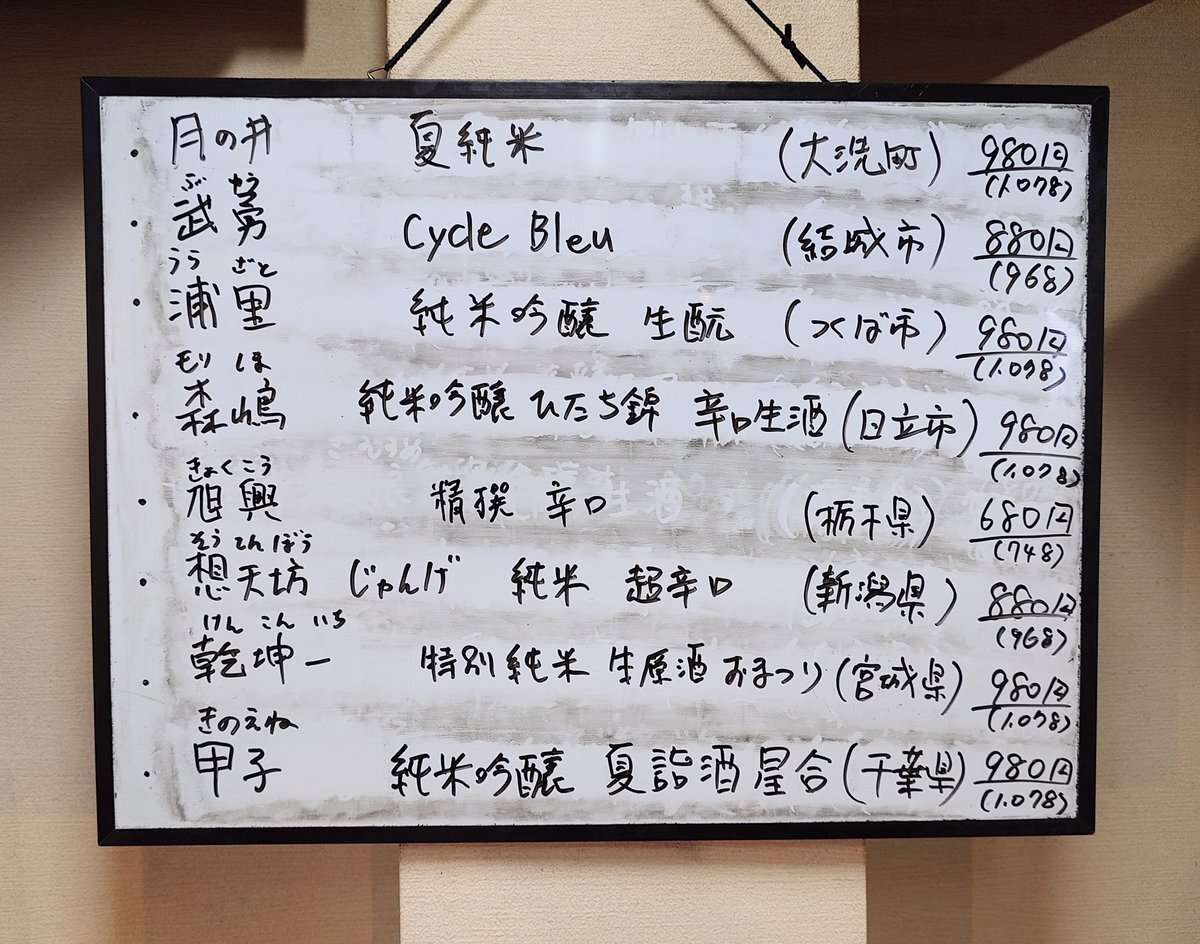 ・月の井 夏純米 (大洗町) 980円
(1.078)
ぶ ゆう
・武勇 Cycle Bleu (結城市) 880円
(968)
うら ざと
・浦里 純米吟醸 生酛 (つくば市) 980円
(1.078)
もり しま
・森嶋 純米吟醸 ひたち錦 辛口生酒 (日立市) 980円
(1.078)
きょくこう
・旭興 精撰 辛口 (栃木県) 680円
(748)
そうてんぼう
・想天坊 じゃんげ 純米 超辛口 (新潟県) 880円
(968)
けん こん いち
・乾坤一 特別純米 生原酒 おまつり (宮城県) 980円
(1.078)
きのえね
・甲子 純米吟醸 夏詣酒 星合 (千葉県) 980円
(1.078)